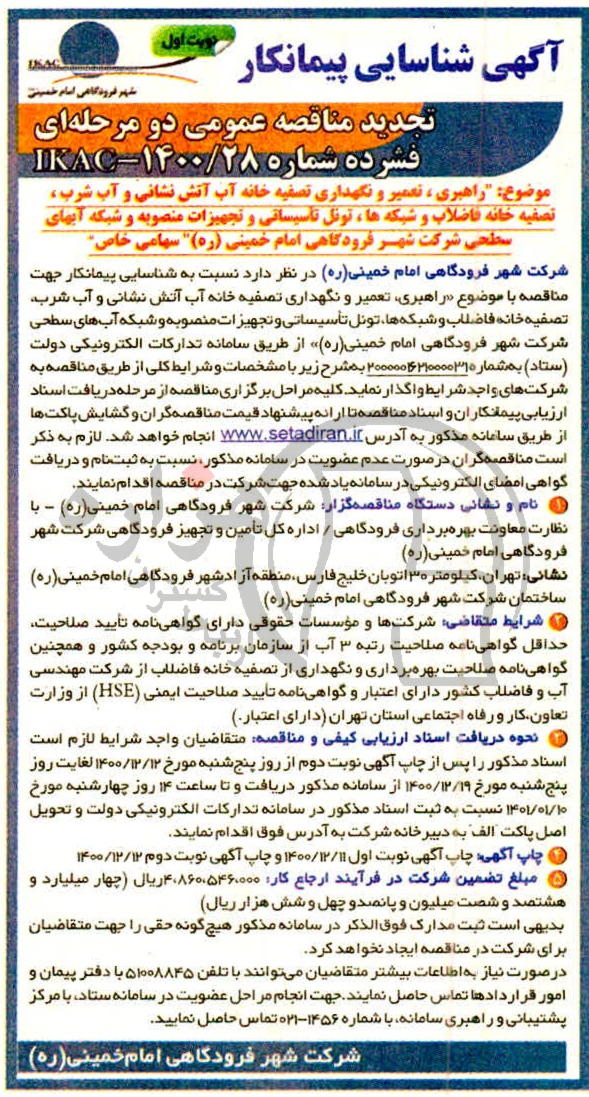 آگهی شناسایی پیمانکار
نوبت اول
IKAC
شهر فرودگاهی امام خمینی
تجدید مناقصه عمومی دو مرحله‌ای
فشرده شماره IKAC-۱۴۰۰/۲۸
موضوع: "راهبری ، تعمیر و نگهداری تصفیه خانه آب آتش نشانی و آب شرب ،
تصفیه خانه فاضلاب و شبکه ها ، تونل تأسیساتی و تجهیزات منصوبه و شبکه آبهای
سطحی شرکت شهر فرودگاهی امام خمینی (ره)" سهامی خاص"
شرکت شهر فرودگاهی امام خمینی(ره) در نظر دارد نسبت به شناسایی پیمانکار جهت
مناقصه با موضوع «راهبری، تعمیر و نگهداری تصفیه خانه آب آتش نشانی و آب شرب،
تصفیه خانه فاضلاب و شبکه‌ها، تونل تأسیساتی و تجهیزات منصوبه و شبکه آب‌های سطحی
شرکت شهر فرودگاهی امام خمینی(ره)» از طریق سامانه تدارکات الکترونیکی دولت
(ستاد) به‌شماره ۲۰۰۰۰۰۱۶۲۱۰۰۰۰۳۱ به‌شرح زیر با مشخصات و شرایط کلی از طریق مناقصه به
شرکت‌های واجد شرایط واگذار نماید. کلیه مراحل برگزاری مناقصه از مرحله دریافت اسناد
ارزیابی پیمانکاران و اسناد مناقصه تا ارائه پیشنهاد قیمت مناقصه‌گران و گشایش پاکت‌ها
از طریق سامانه مذکور به آدرس www.setadiran.ir انجام خواهد شد. لازم به ذکر
است مناقصه‌گران در صورت عدم عضویت در سامانه مذکور، نسبت به ثبت‌نام و دریافت
گواهی امضای الکترونیکی در سامانه یاد شده جهت شرکت در مناقصه اقدام نمایند.
۱ نام و نشانی دستگاه مناقصه‌گزار: شرکت شهر فرودگاهی امام خمینی(ره) - با
نظارت معاونت بهره‌برداری فرودگاهی / اداره کل تأمین و تجهیز فرودگاهی شرکت شهر
فرودگاهی امام خمینی(ره)
نشانی: تهران، کیلومتر ۳۰ اتوبان خلیج فارس، منطقه آزاد شهر فرودگاهی امام خمینی(ره)
ساختمان شرکت شهر فرودگاهی امام خمینی(ره)
۲ شرایط متقاضی: شرکت‌ها و مؤسسات حقوقی دارای گواهی‌نامه تأیید صلاحیت،
حداقل گواهی‌نامه صلاحیت رتبه ۳ آب از سازمان برنامه و بودجه کشور و همچنین
گواهی‌نامه صلاحیت بهره‌برداری و نگهداری از تصفیه خانه فاضلاب از شرکت مهندسی
آب و فاضلاب کشور دارای اعتبار و گواهی‌نامه تأیید صلاحیت ایمنی (HSE) از وزارت
تعاون، کار و رفاه اجتماعی استان تهران (دارای اعتبار.)
۳ نحوه دریافت اسناد ارزیابی کیفی و مناقصه: متقاضیان واجد شرایط لازم است
اسناد مذکور را پس از چاپ آگهی نوبت دوم از روز پنج‌شنبه مورخ ۱۴۰۰/۱۲/۱۲ لغایت روز
پنج‌شنبه مورخ ۱۴۰۰/۱۲/۱۹ از سامانه مذکور دریافت و تا ساعت ۱۴ روز چهارشنبه مورخ
۱۴۰۱/۰۱/۱۰ نسبت به ثبت اسناد مذکور در سامانه تدارکات الکترونیکی دولت و تحویل
اصل پاکت "الف" به دبیرخانه شرکت به آدرس فوق اقدام نمایند.
۴ چاپ آگهی: چاپ آگهی نوبت اول ۱۴۰۰/۱۲/۱۱ و چاپ آگهی نوبت دوم ۱۴۰۰/۱۲/۱۲
۵ مبلغ تضمین شرکت در فرآیند ارجاع کار: ۴،۸۶۰،۵۴۶،۰۰۰ ریال (چهار میلیارد و
هشتصد و شصت میلیون و پانصد و چهل و شش هزار ریال)
بدیهی است ثبت مدارک فوق‌الذکر در سامانه مذکور هیچ‌گونه حقی را جهت متقاضیان
برای شرکت در مناقصه ایجاد نخواهد کرد.
در صورت نیاز به اطلاعات بیشتر متقاضیان می‌توانند با تلفن ۵۱۰۰۸۸۴۵ با دفتر پیمان و
امور قراردادها تماس حاصل نمایند. جهت انجام مراحل عضویت در سامانه ستاد، با مرکز
پشتیبانی و راهبری سامانه، با شماره ۱۴۵۶-۰۲۱ تماس حاصل نمایید.
شرکت شهر فرودگاهی امام خمینی(ره)